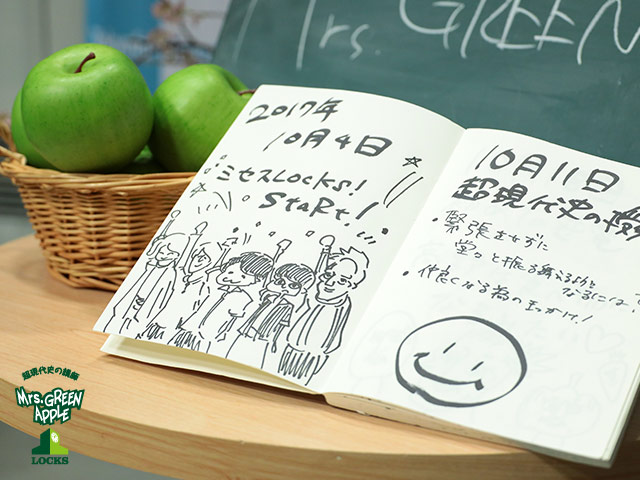 Mrs. GREEN
2017年
10月4日
ミセスLOCKS!
StaRt!
10月11日
超現代史の授
・緊張せずに
堂々と振る舞えるように
なるには?
・仲良くなる為のきっかけ!
超現代史の講師
Mrs. GREEN
APPLE
LOCKS